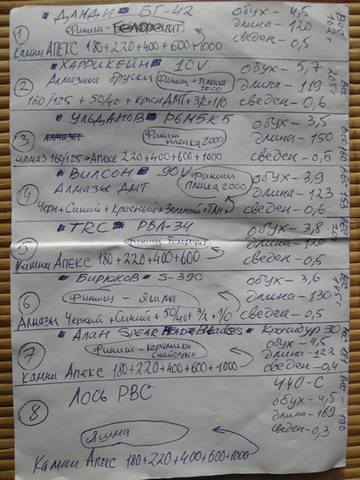 ① ДАНДИ БГ-42 обух-4,5
Финиш Белорецит длина-120
Камни АПЕКС 180+220+400+600+1000 сведен-0,5
② ХАРРИКЕЙН 10V обух-5,7
Алмазные бруски Финиш-Пленка 2000 длина-119
160/125 + 50/40 + КраснДМТ+3/2+1/0 сведен-0,6
③ УЛЬДАНОВ Р6М5К5 обух-3,5
Финиш пленка2000 длина-150
Алмаз 160/125→Апекс 220+400+600+1000 сведен-0,5
④ ВИЛСОН 90V обух-3,9
Алмазы ДМТ Финиш пленка2000 длина-123
Черн+Синий+Красный+Зеленый+ сведен-0,6
⑤ TRC РВА-34 обух-3,8
Финиш
Камни АПЕКС 180+220+400+600 сведен-0,5
⑥ БИРЮКОВ S-390 обух-3,6
Финиш-Яшма длина-130
Алмазы Черный+Синий+50/40+3/2+1/0 сведен-0,5
⑦ Алан SPEAR Кронидур 30
Финиш-керамика Спайдерко обух-4,5
длина-122
Камни Апекс 180+220+400+600+1000 сведен-0,4
⑧ Лось РВС 440-С
обух-4,5
Яшма длина-169
сведен-0,3
Камни Апекс 180+220+400+600+1000